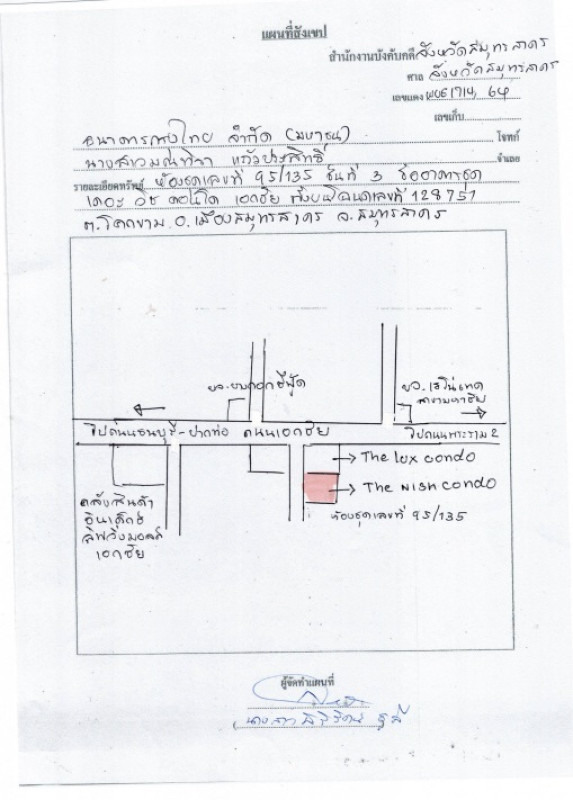 แผนที่สังเขป
สำนักงานบังคับคดี จังหวัดสมุทรสาคร
ศาล จังหวัดสมุทรสาคร
เลขแดง ผบE1714/64
เลขเก็บ
ธนาคารกรุงไทย จำกัด (มหาชน) โจทก์
นางสาวมณฑิรา แก้วประสิทธิ์ จำเลย
รายละเอียดทรัพย์ ห้องชุดเลขที่ 95/135 ชั้นที่ 3 ชื่ออาคารชุด
เดอะ นิช คอนโด เอกชัย ตั้งบนโฉนดเลขที่ 128751
ต.โคกขาม อ.เมืองสมุทรสาคร จ.สมุทรสาคร
บจ.
บจ.
มหาชัย
ไปถนนธนบุรี-ปากท่อ ถนนเอกชัย
ไปถนนพระราม 2
The Lux condo
The Nish condo
ห้องชุดเลขที่ 95/135
คลังสินค้า
อินเด็กซ์
ลิฟวิ่งมอลล์
เอกชัย
ผู้จัดทำแผนที่
นางสาว